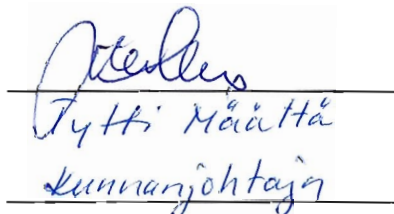 Tytti Määttä
Kunnanjohtaja